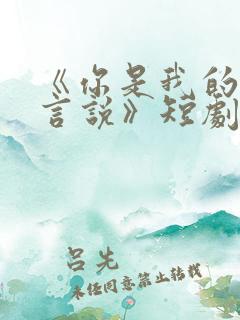 《你是我的
言說》短劇
呂先
未经同意禁止转载